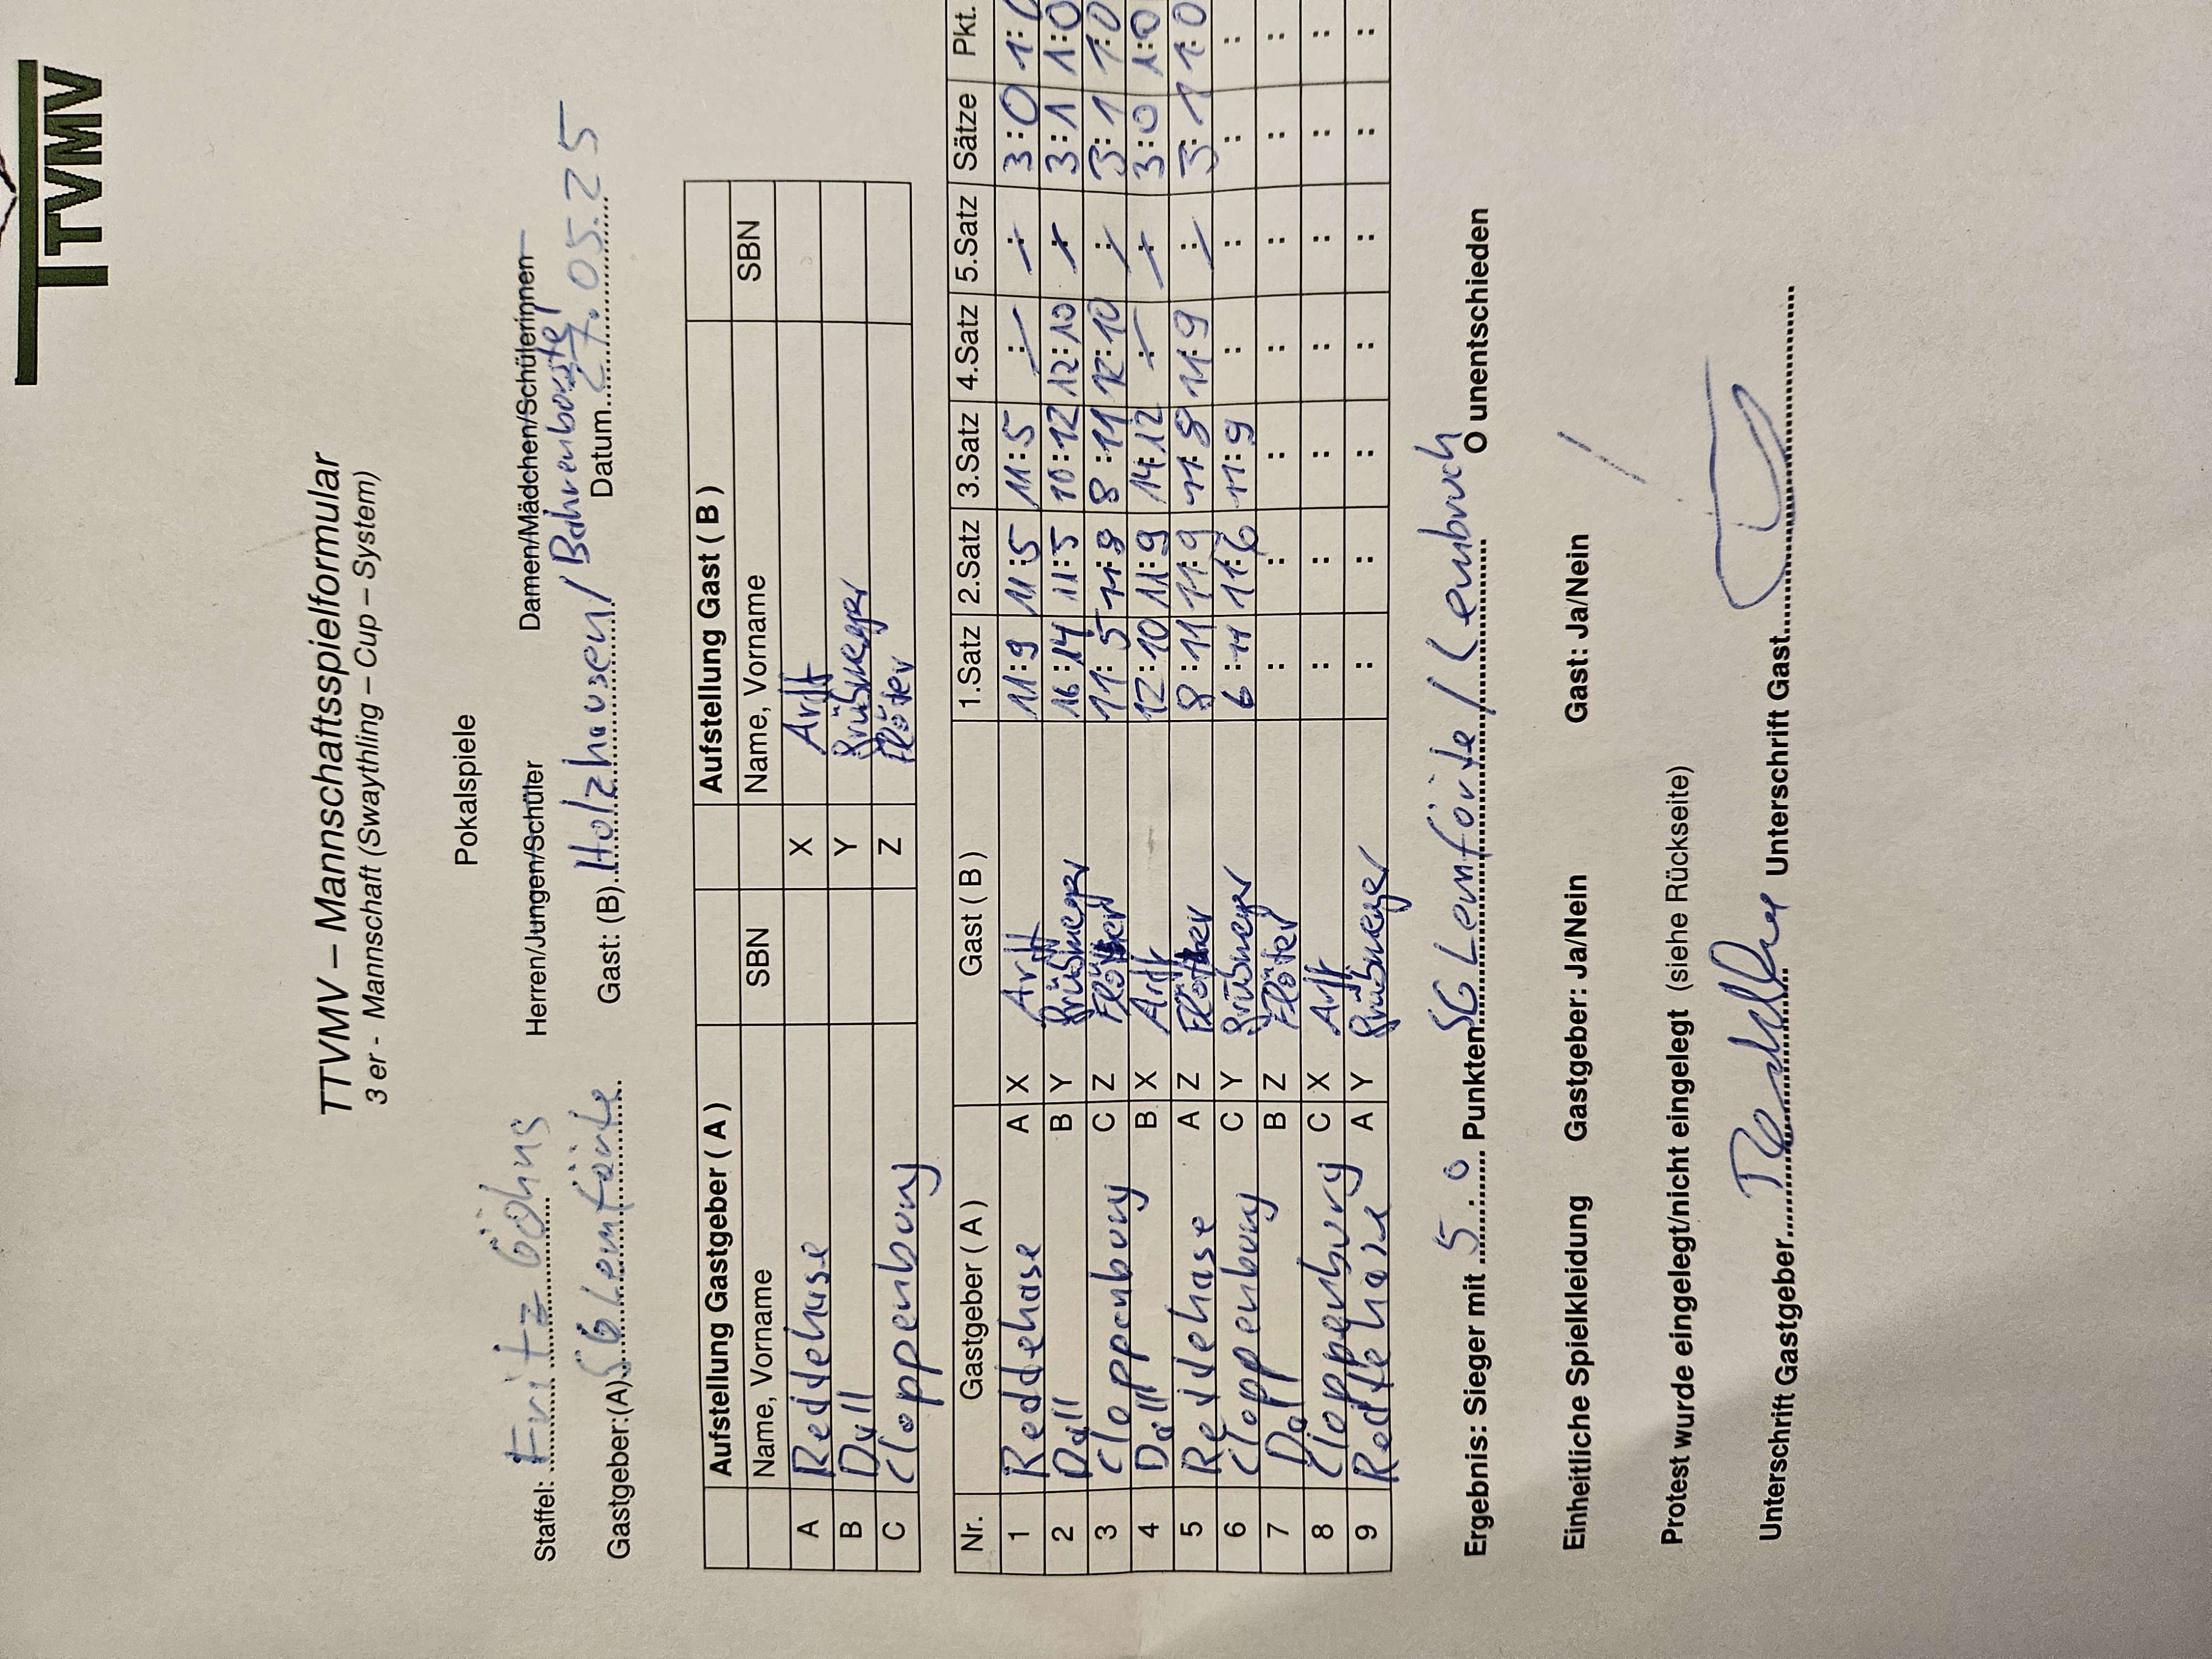 TTVMV
TTVMV – Mannschaftsspielformular
3 er - Mannschaft (Swaythling – Cup – System)
Pokalspiele
Staffel: Fritz Göhns Herren/Jungen/Schüler Damen/Mädchen/Schülerinnen
Gastgeber:(A) SG Lemförde Gast: (B) Holzhausen / Bahrenborstel Datum 27.05.25
Aufstellung Gastgeber ( A ) Aufstellung Gast ( B )
Name, Vorname SBN Name, Vorname SBN
A Reddehase X Arft
B Dall Y
C Cloppenburg Z Flöter
Nr. Gastgeber ( A ) Gast ( B ) 1.Satz 2.Satz 3.Satz 4.Satz 5.Satz Sätze Pkt.
1 Reddehase A X Arft 11:9 11:5 11:5 : : 3:0 1:0
2 Dall B Y 16:14 11:5 10:12 12:10 : 3:1 1:0
3 Cloppenburg C Z Flöter 11:5 11:8 8:11 12:10 : 3:1 1:0
4 Dall B X Arft 12:10 11:9 14:12 : : 3:0 1:0
5 Reddehase A Z Flöter 8:11 11:9 11:8 11:9 : 3:1 1:0
6 Cloppenburg C Y 6:11 11:6 11:9 : : : :
7 Dall B Z Flöter : : : : : : :
8 Cloppenburg C X Arft : : : : : : :
9 Reddehase A Y : : : : : : :
Ergebnis: Sieger mit 5 : 0 Punkten SG Lemförde / Lembruch O unentschieden
Einheitliche Spielkleidung Gastgeber: Ja/Nein Gast: Ja/Nein
Protest wurde eingelegt/nicht eingelegt (siehe Rückseite)
Unterschrift Gastgeber Unterschrift Gast